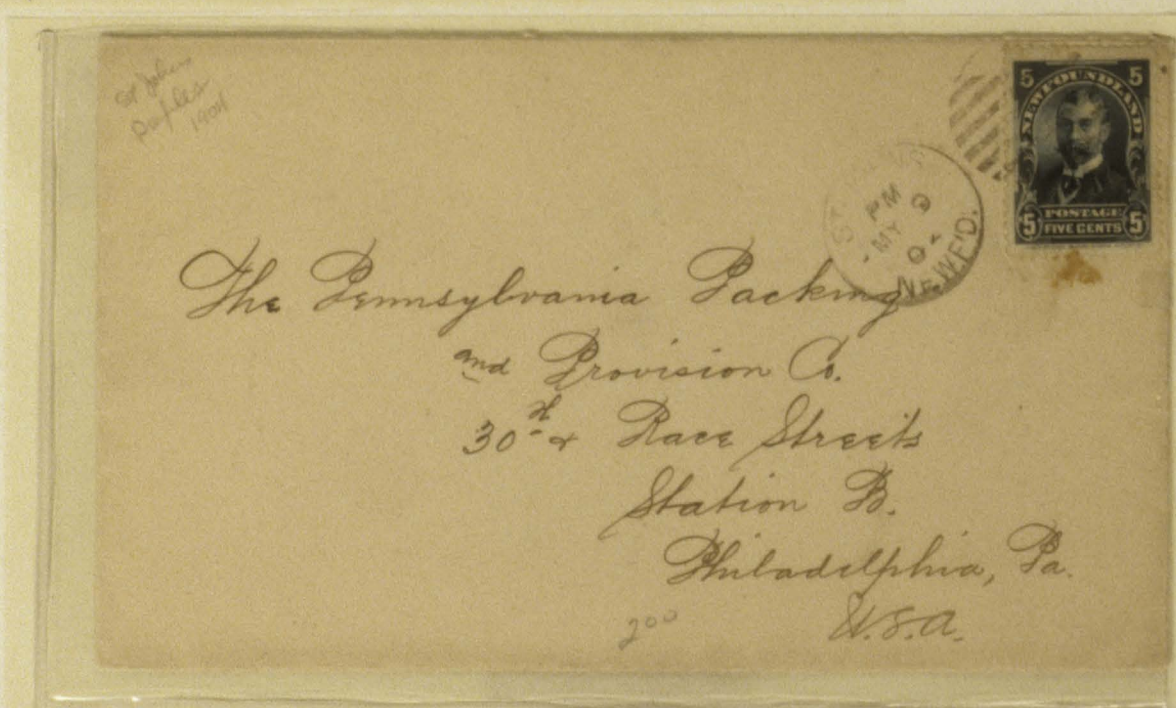 St Johns
Duplex
1904
5 5
NEWFOUNDLAND
POSTAGE
5 FIVE CENTS 5
ST. JOHN'S
PM
MY 9
04
NEWF'D.
The Pennsylvania Packing
and Provision Co.
30th & Race Streets
Station B.
Philadelphia, Pa.
U.S.A.
200